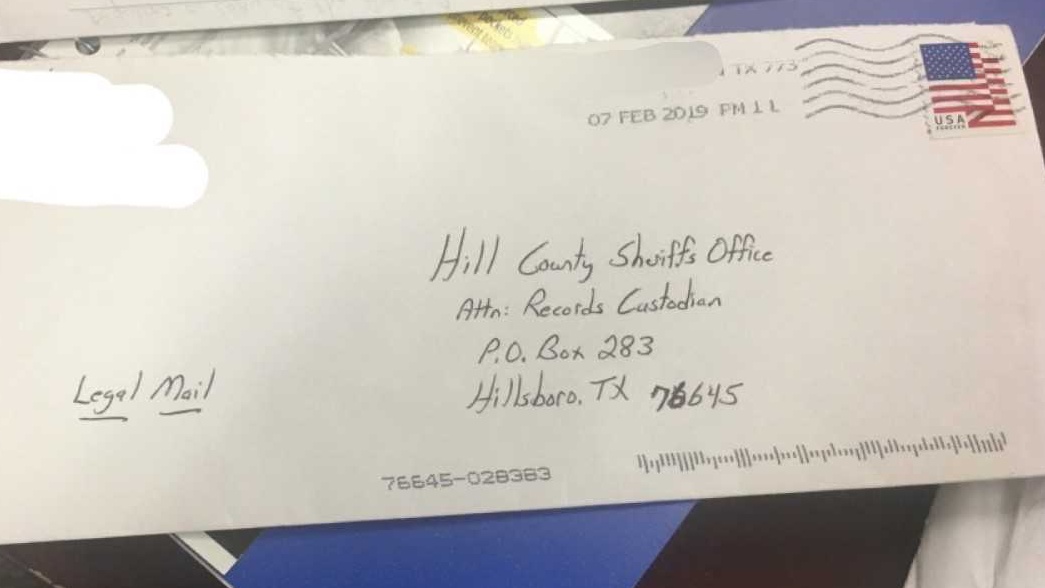 TX 773
07 FEB 2019 PM 1 L
USA
FOREVER
Hill County Sheriffs Office
Attn: Records Custodian
P.O. Box 283
Hillsboro, TX 76645
Legal Mail
76645-028383